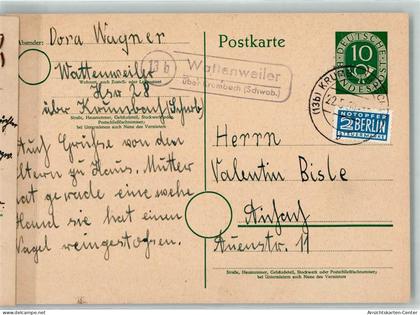 Absender: Dora Wagner
Wattenweiler
Hsr 28
über Krumbach/Schwb.
Straße, Hausnummer, Gebäudeteil, Stockwerk oder Postschließfachnummer;
bei Untermietern auch Name des Vermieters
Auch Grüße von den
Eltern zu Haus. Mutter
hat gerade eine wehe
Hand sie hat einen
Nagel reingestochen.
Postkarte
13b
Wattenweiler
über Krumbach (Schwab.)
DEUTSCHE BUNDESPOST
10
(13b) KRUMBACH
NOTOPFER
2 BERLIN
STEUERMARKE
Herrn
Valentin Bisle
Auenstr. 11
Straße, Hausnummer, Gebäudeteil, Stockwerk oder Postschließfachnummer;
bei Untermietern auch Name des Vermieters
Ansichtskarten-Center